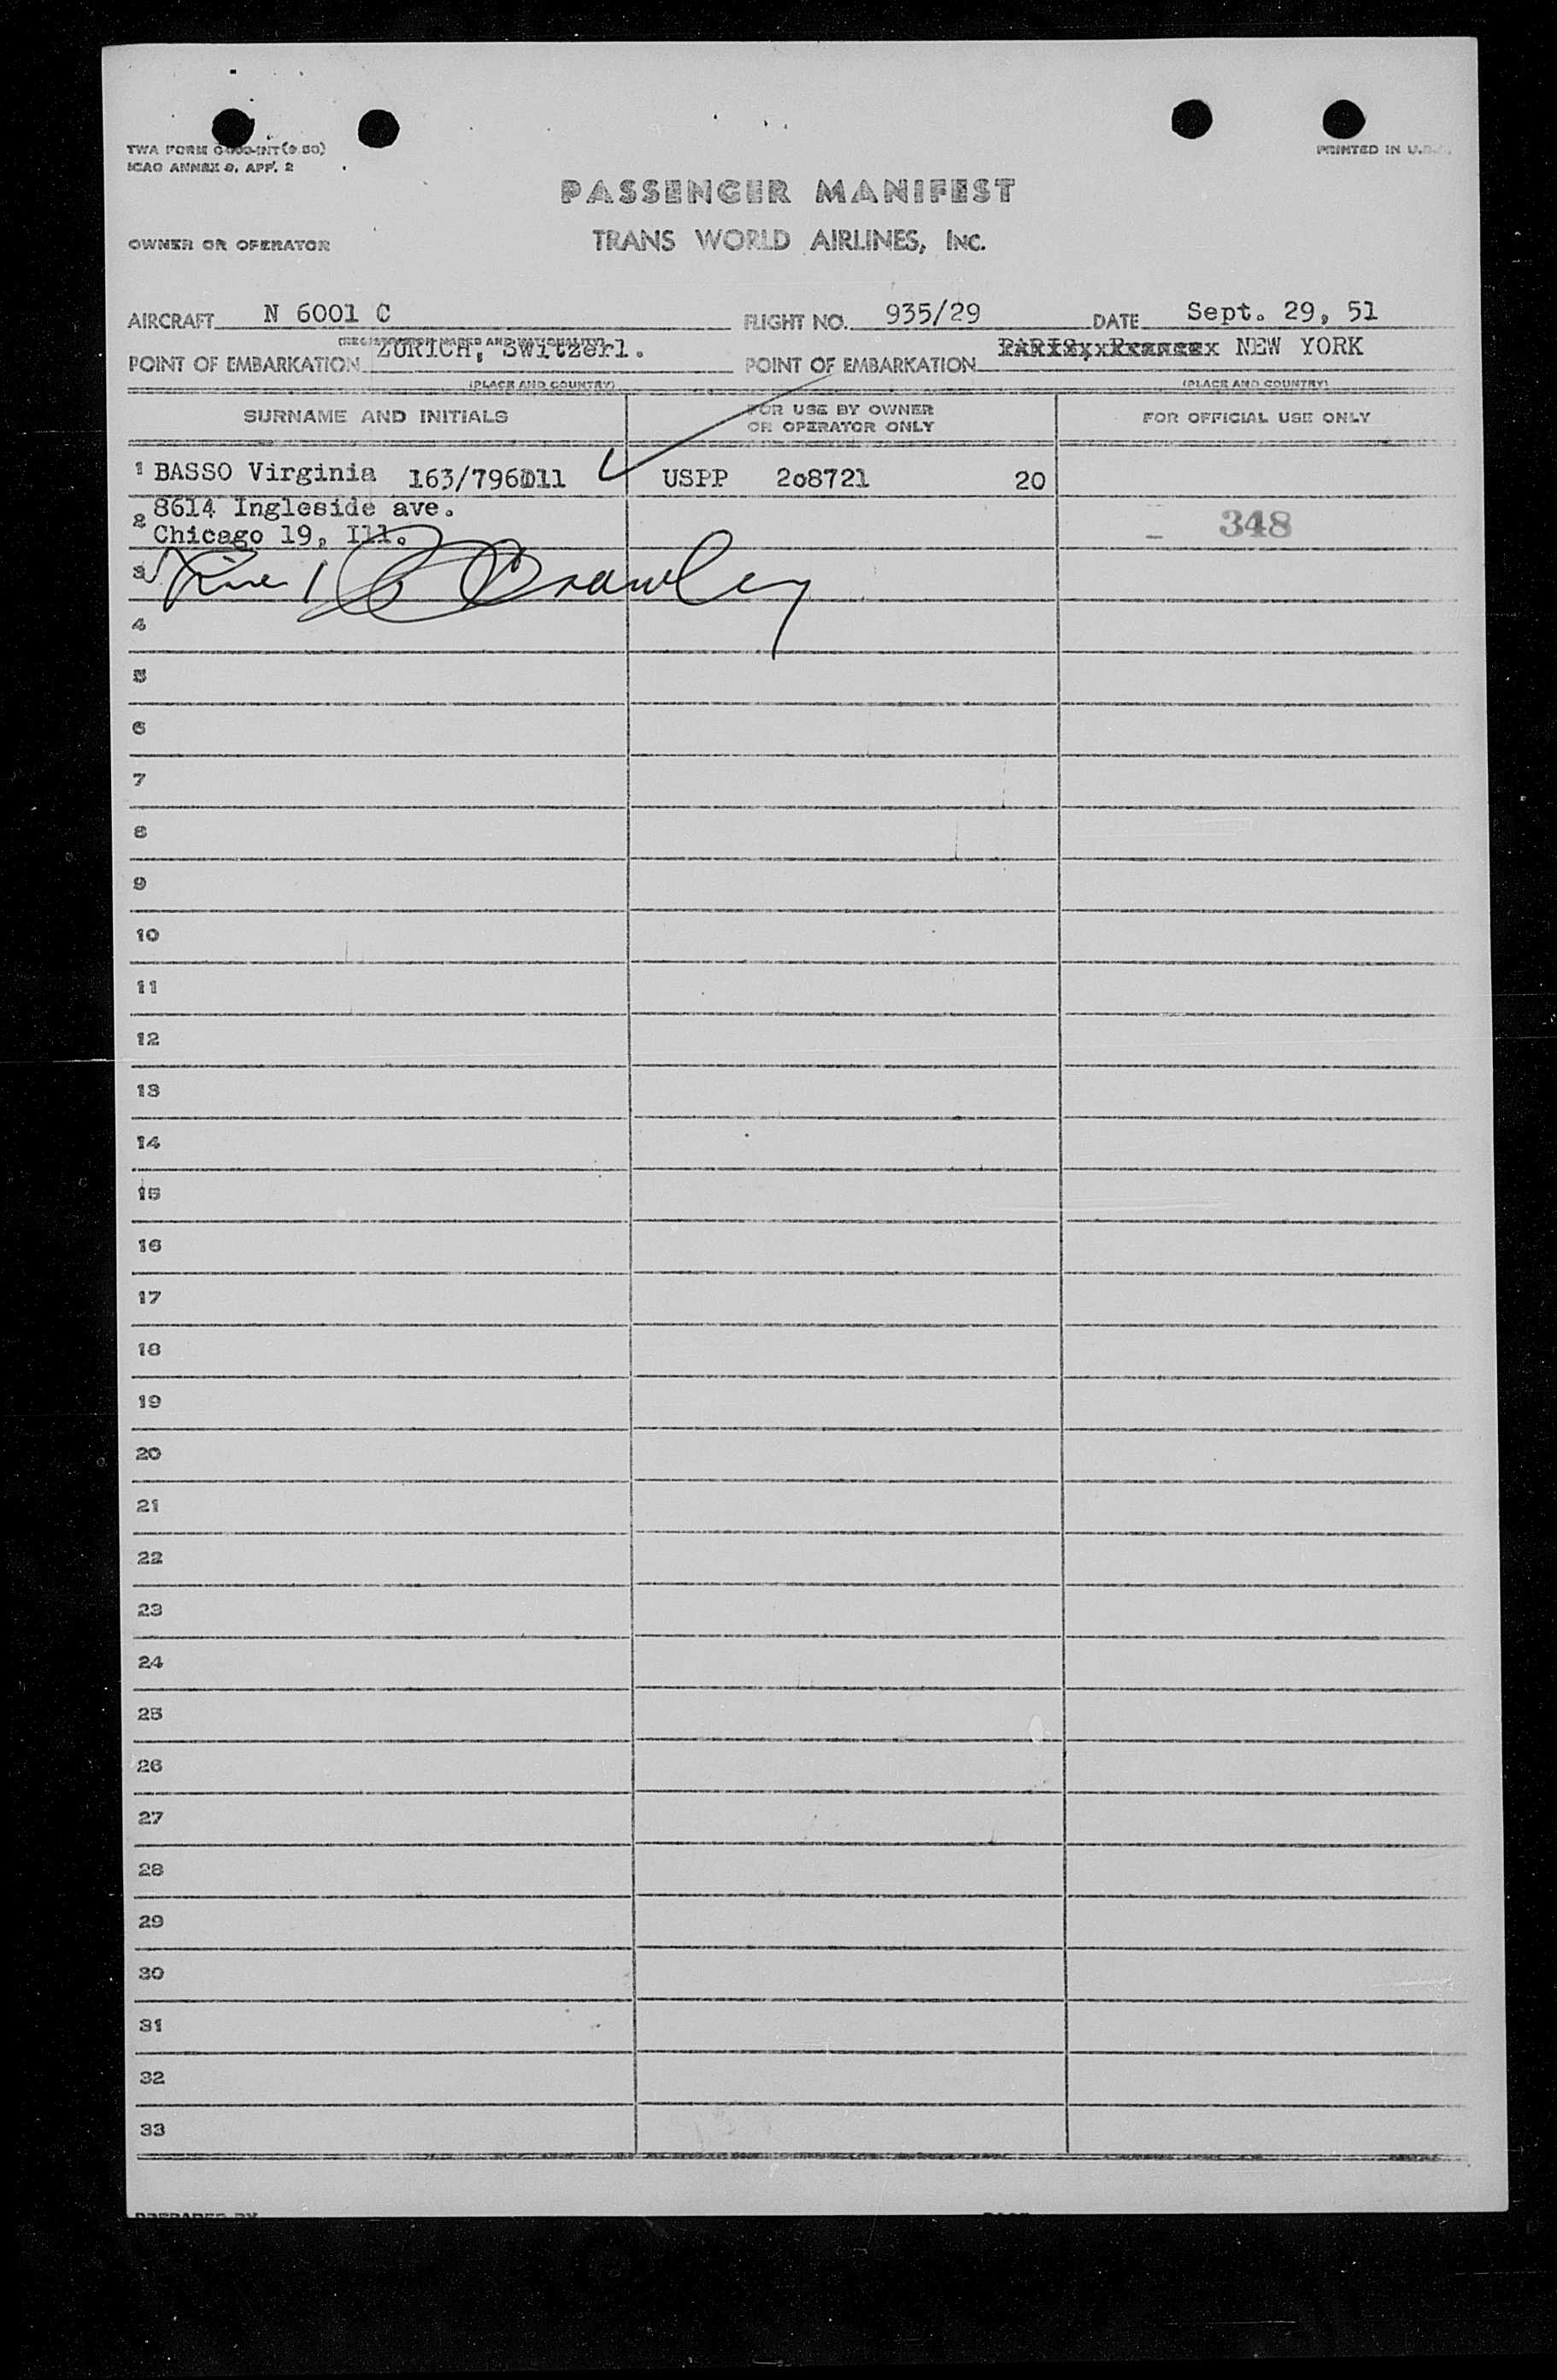 TWA FORM
ICAO ANNEX 9, APP. 2
PRINTED IN U.S.A.
PASSENGER MANIFEST
OWNER OR OPERATOR TRANS WORLD AIRLINES, INC.
AIRCRAFT N 6001 C FLIGHT NO. 935/29 DATE Sept. 29, 51
(REGISTRATION MARKS AND NATIONALITY)
POINT OF EMBARKATION ZURICH, Switzerl. POINT OF EMBARKATION NEW YORK
(PLACE AND COUNTRY) (PLACE AND COUNTRY)
SURNAME AND INITIALS FOR USE BY OWNER OR OPERATOR ONLY FOR OFFICIAL USE ONLY
1 BASSO Virginia 163/796D11 USPP 2o8721 20
8614 Ingleside ave.
2 Chicago 19, Ill. 348
3 Crawley
4
5
6
7
8
9
10
11
12
13
14
15
16
17
18
19
20
21
22
23
24
25
26
27
28
29
30
31
32
33